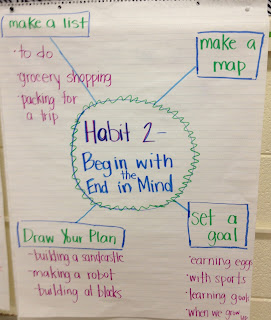 make a list
· to do
· grocery shopping
· packing for
a trip
make a
map
Habit 2 -
Begin with
the
End in Mind
Draw Your Plan
- building a sandcastle
- making a robot
- building at blocks
set a
goal
· earning eggs
· with sports
· learning goals
· when we grow up